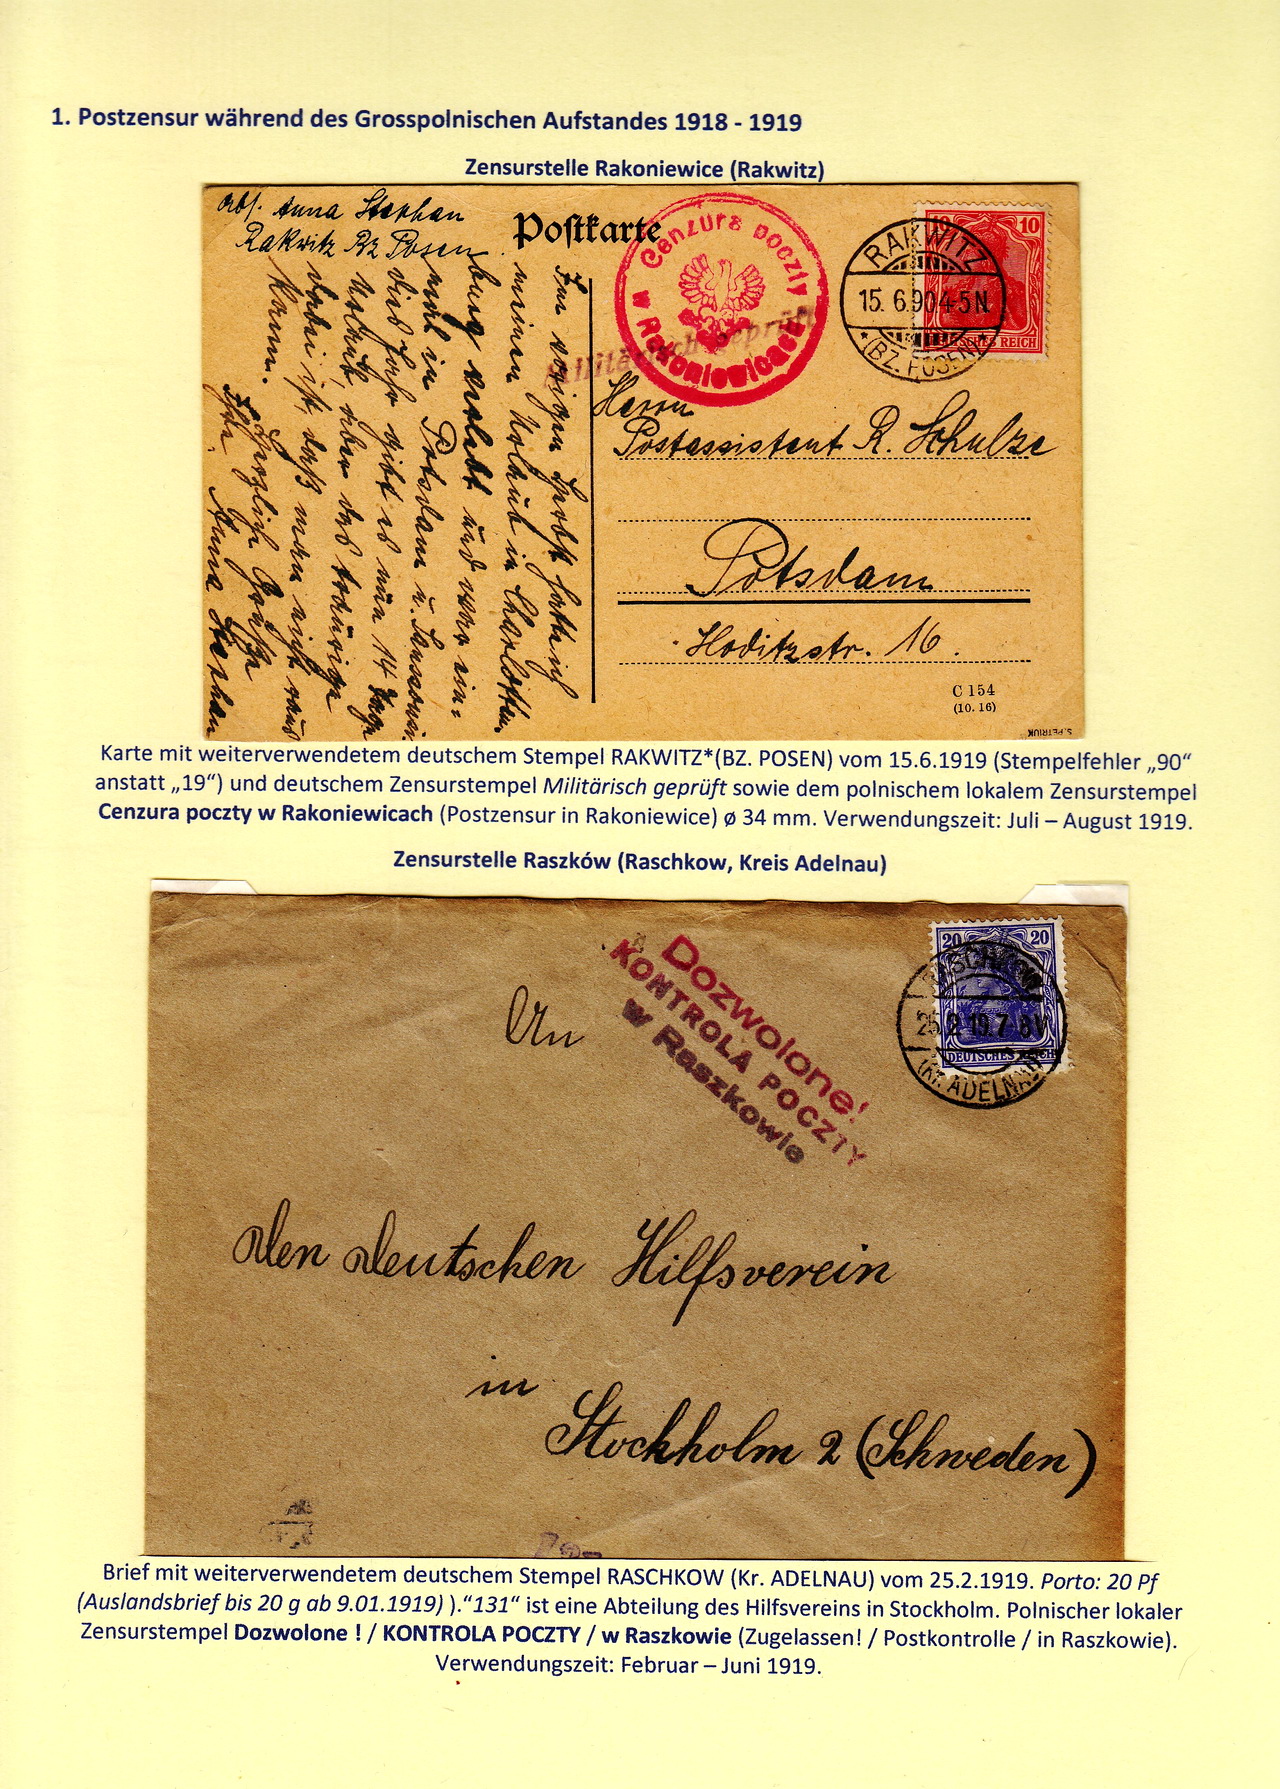 1. Postzensur während des Grosspolnischen Aufstandes 1918 - 1919
Zensurstelle Rakoniewice (Rakwitz)
Abs. Anna Stephan
Rakwitz Bz Posen
Postkarte
Cenzura poczty
w Rakoniewicach
Militärisch geprüft
RAKWITZ
15. 6.90 4-5N
*(BZ. POSEN)*
10 10
DEUTSCHES REICH
Im vorigen Herbst hatte ich
meinen Urlaub in Charlotten-
burg verlebt und war ein-
mal in Potsdam u. Sanssouci.
Dies Jahr gibt es nun 14 Tage
Urlaub, aber das traurige
dabei ist, daß man nicht raus
kann.
Herzliche Grüße
Ihre Anna Stephan
Herrn
Postassistent R. Schulze
Potsdam
Hoditzstr. 16.
C 154
(10. 16)
S. PETRIUK
Karte mit weiterverwendetem deutschem Stempel RAKWITZ*(BZ. POSEN) vom 15.6.1919 (Stempelfehler „90“
anstatt „19“) und deutschem Zensurstempel Militärisch geprüft sowie dem polnischem lokalem Zensurstempel
Cenzura poczty w Rakoniewicach (Postzensur in Rakoniewice) ø 34 mm. Verwendungszeit: Juli – August 1919.
Zensurstelle Raszków (Raschkow, Kreis Adelnau)
Dozwolone!
KONTROLA POCZTY
w Raszkowie
20 20
DEUTSCHES REICH
RASCHKOW
25.2.19.7-8V
(Kr. ADELNAU)
An
Den Deutschen Hilfsverein
in
Stockholm 2 (Schweden)
Brief mit weiterverwendetem deutschem Stempel RASCHKOW (Kr. ADELNAU) vom 25.2.1919. Porto: 20 Pf
(Auslandsbrief bis 20 g ab 9.01.1919) ).“131“ ist eine Abteilung des Hilfsvereins in Stockholm. Polnischer lokaler
Zensurstempel Dozwolone ! / KONTROLA POCZTY / w Raszkowie (Zugelassen! / Postkontrolle / in Raszkowie).
Verwendungszeit: Februar – Juni 1919.